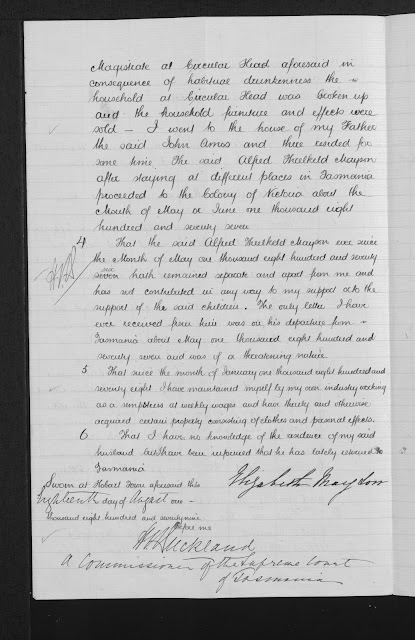 Magistrate at Circular Head aforesaid in
consequence of habitual drunkenness the
household at Circular Head was broken up
and the household furniture and effects were
sold – I went to the house of my Father
the said John Amos and there resided for
some time The said Alfred Threlkeld Mayson
after staying at different places in Tasmania
proceeded to the Colony of Victoria about the
Month of May or June one thousand eight
hundred and seventy seven
4 That the said Alfred Threlkeld Mayson ever since
the Month of May one thousand eight hundred and seventy
six
seven hath remained separate and apart from me and
has not contributed in any way to my support or to the
support of the said children. The only letter I have
ever received from him was on his departure from
Tasmania about May one thousand eight hundred and
seventy seven and was of a threatening nature
5 That since the month of January one thousand eight hundred and
seventy eight I have maintained myself by my own industry working
as a simpstress at weekly wages and have thereby and otherwise
acquired certain property consisting of clothes and personal effects.
6 That I have no knowledge of the residence of my said
husband but I have been informed that he has lately returned to
Tasmania
Sworn at Hobart Town aforesaid this
Eighteenth day of August one
thousand eight hundred and seventy nine
Before me
Elizabeth Mayson
Buckland
A Commissioner of the Supreme Court
of Tasmania